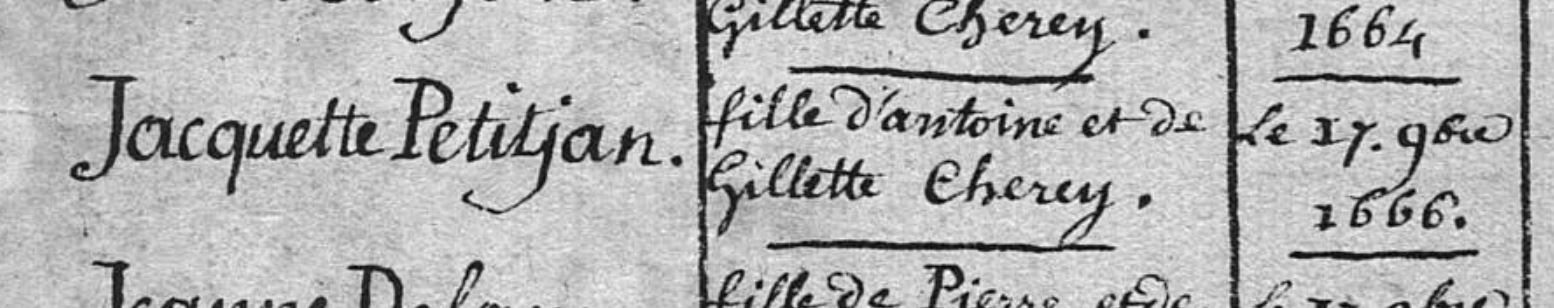 Gillette Cherey.
1664
Jacquette Petitjan.
fille d'antoine et de
Gillette Cherey.
Le 17. 9bre
1666.
Jeanne
fille de Pierre et de